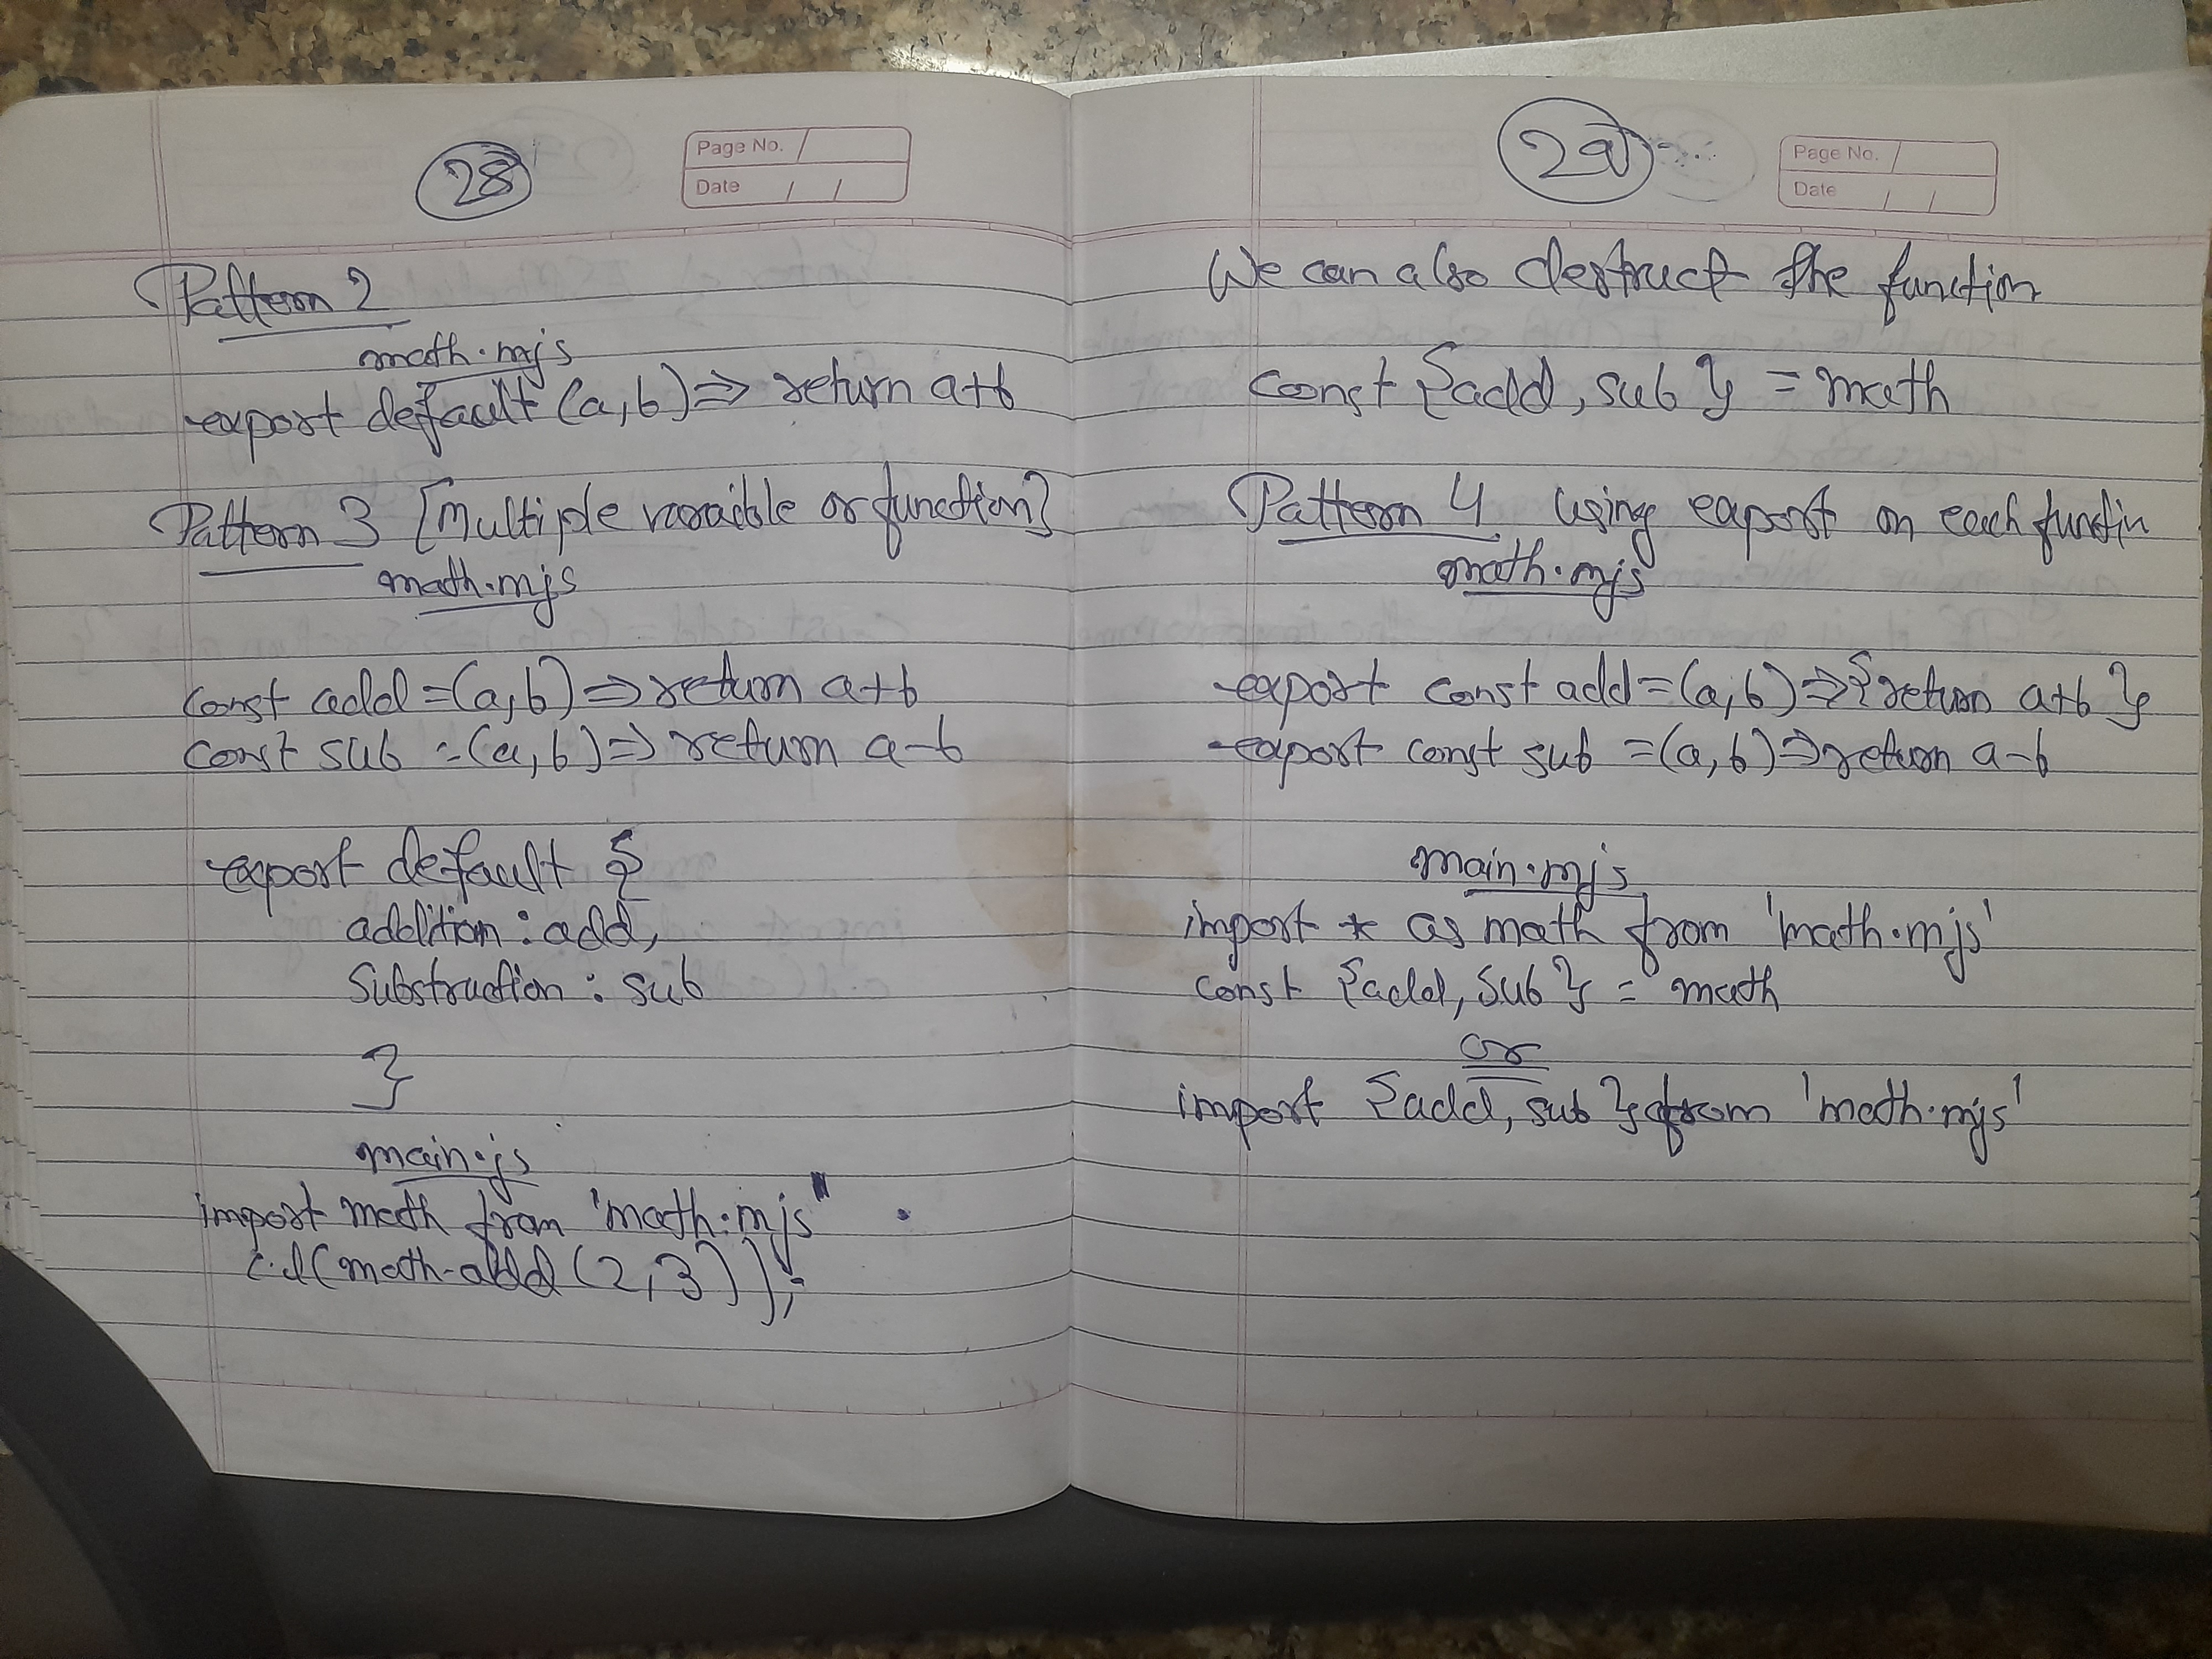 28
Page No.
Date / /
Pattern 2
math.mjs
export default (a,b) => return a+b
Pattern 3 [Multiple varaible or function]
math.mjs
const add = (a,b) => return a+b
const sub = (a,b) => return a-b
export default {
addition : add,
Substruction : sub
}
main.js
import math from 'math.mjs"
c.l(math.add(2,3));
29
Page No.
Date / /
We can also destruct the function
const {add, sub} = math
Pattern 4 Using export on each functin
math.mjs
export const add = (a,b) => {return a+b}
export const sub = (a,b) => return a-b
main.mjs
import * as math from 'math.mjs'
const {add, sub} = math
or
import {add, sub} from 'math.mjs'